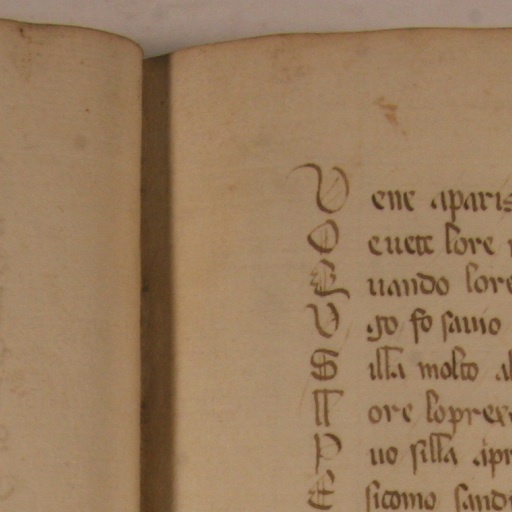 V ene aparis
O euete lore
E uando lore
V go fo sauio
S illa molto al
M ore loprex
P uo silla apr
E sicomo sand